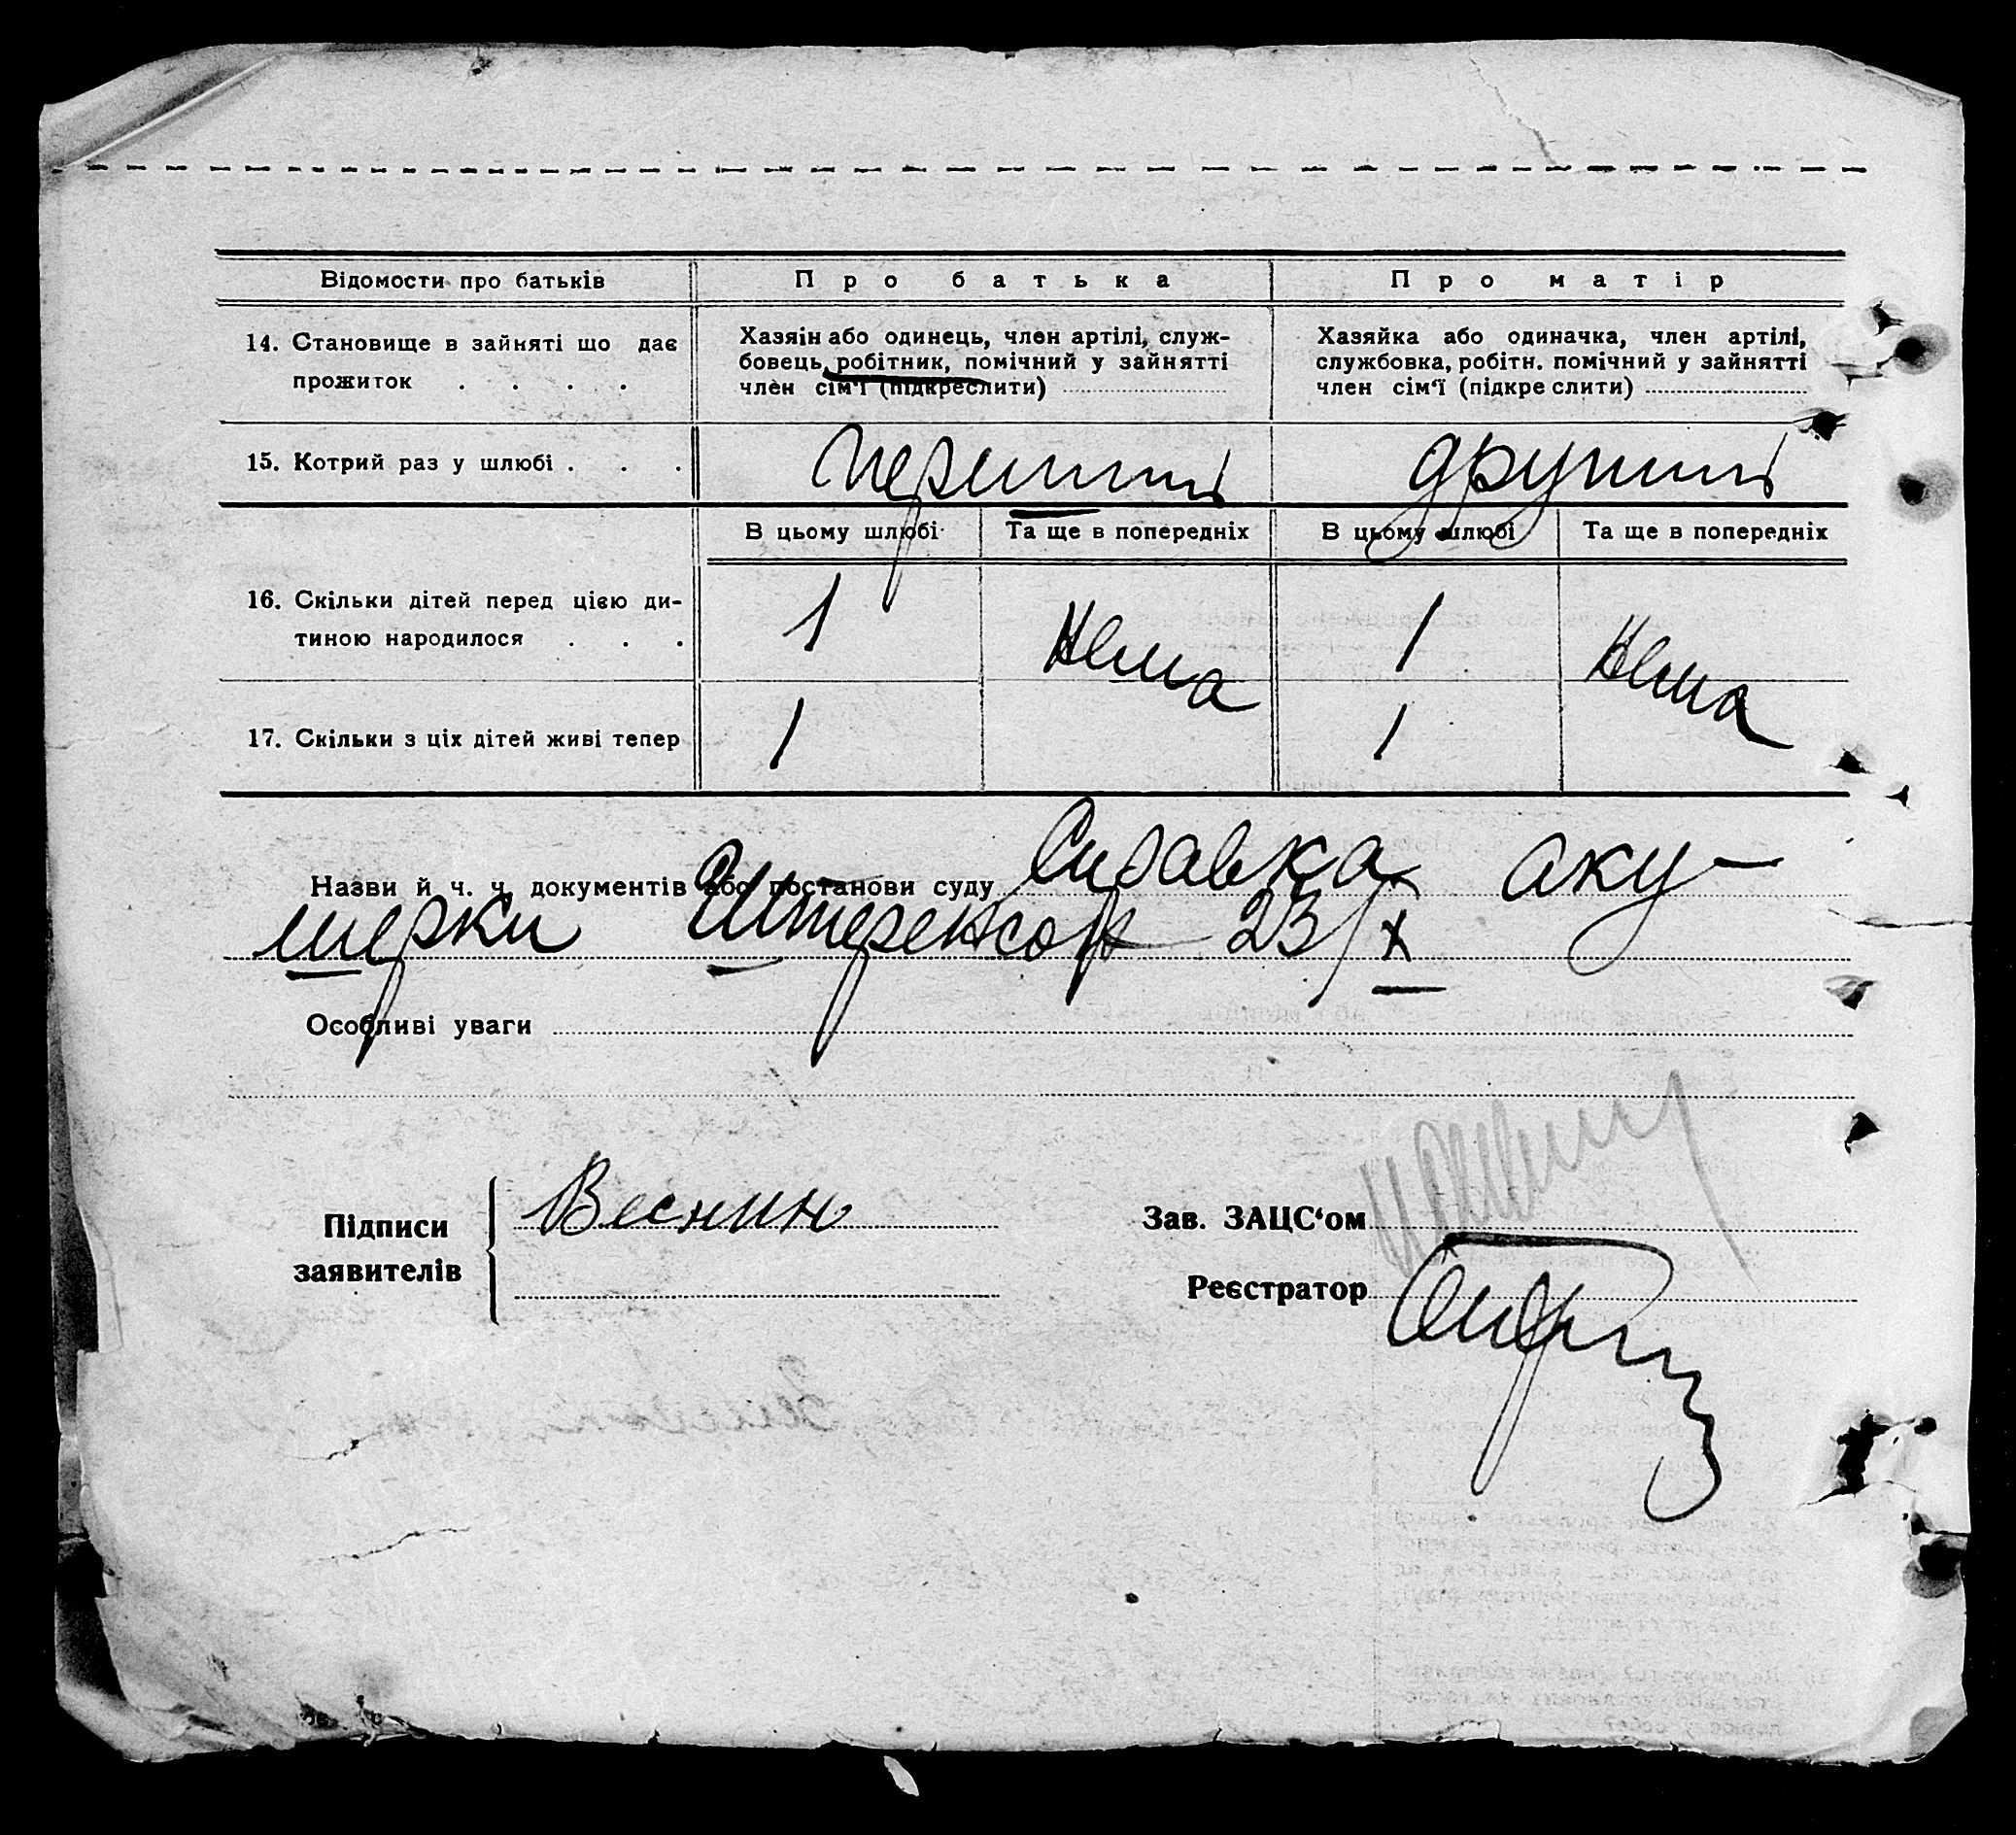 Відомости про батьків
Про батька
Про матір
14. Становище в зайняті що дає
прожиток . . . .
Хазяін або одинець, член артілі, служ-
бовець, робітник, помічний у зайнятті
член сім'ї (підкреслити)
Хазяйка або одиначка, член артілі,
службовка, робітн. помічний у зайнятті
член сім'ї (підкре слити)
15. Котрий раз у шлюбі . . .
перший
другий
В цьому шлюбі
Та ще в попередніх
В цьому шлюбі
Та ще в попередніх
16. Скільки дітей перед цією ди-
тиною народилося . . .
1
Нема
1
Нема
17. Скільки з ціх дітей живі тепер
1
1
Назви й ч. ч. документів або постанови суду Справка аку-
шерки 23/X
Особливі уваги
Підписи
заявителів
Веснин
Зав. ЗАЦС'ом
Реєстратор